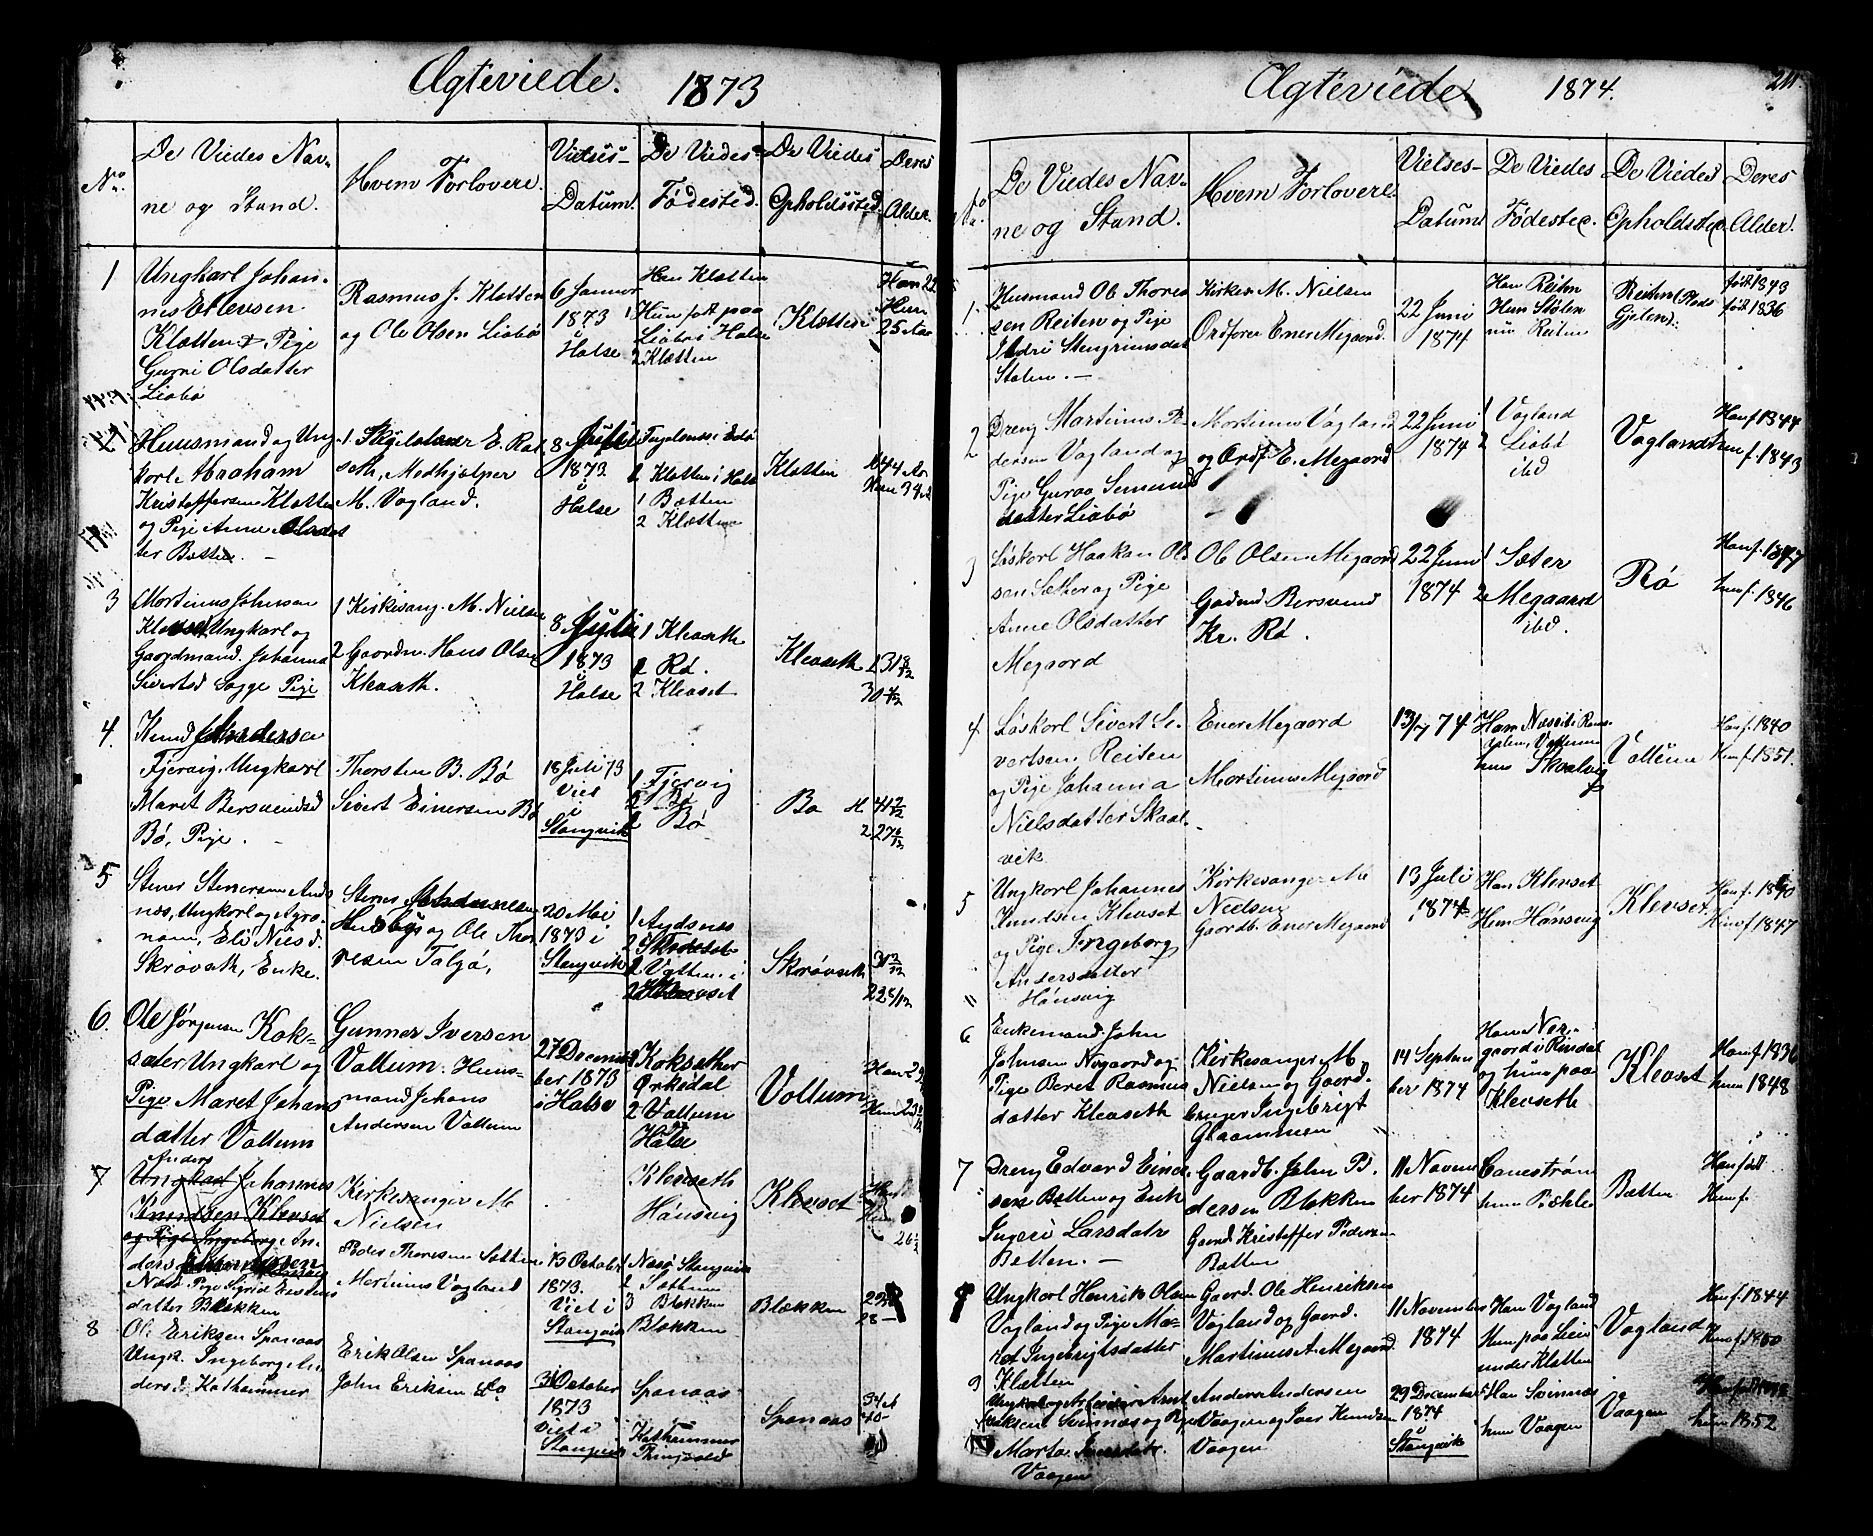 Ægteviede. 1873
No
De Viedes Nav-
ne og Stand.
Hvem Forlovere.
Vielses-
Datum.
De Viedes
Fødested.
De Viedes
Opholdssted.
Deres
Alder.
1
Ungkarl Johan-
nes Erlevsen
Klætten & Pige
Gurri Olsdatter
Liabø
Rasmus J. Kletten
og Ole Olsen Liabø
6 Januar
1873
i
Halse
Han Kletten
Hun født paa
Liabø i Halse
2 Klætten
Klætten
Han 22
Hun
25 Aar
2
Huusmand og Ung-
karl Abraham
Kristoffersen Kletten
og Pige Anne Olsdat
ter Bætten. -
1 Skolelærer E. Rot
seth, Medhjelper
M. Vagland.
8 Juli
1873
i
Halse
2 Kletten i Halse
1 Bætten
2 Klætten
Kletten
M 44 Ar
Hun 34
3
Mortinus Johnsen
Ungkarl og
Gaardmand. Johanna
Siverts d Sogge Pige
1 Kirkesang. M. Nielsen
2 Gaardm. Hans Olsen
Klevseth.
8 Juli
1873
i
Halse
1 Klevseth
2 Rø.
2 Klevset
Klevseth
1 31 8/12
30 4/12
4.
Knud Andersen
Fjervig, Ungkarl
Maret Bersvendsd
Bø, Pige. -
Thorsten B. Bø
Sivert Einersen Bø
18 Juli 73
viet
i
Stangvik
1 Fjervig
2 Bø
2 Bø
Bø
M. 41 2/12
2 27 6/12
5
Stener Stenersen Aands
næs, Ungkarl og Agro-
nom, Eli Nilsd.
Skrøvseth, Enke.
Husby og Ole Thor
resen Talgø,
20 Mai
1873 i
Stangvik
1 Aandsnes
2 Vatten i
2 Klevset
Skrøvseth
31 2/12
22 5/12
6.
Ole Jørgensen Kok-
sæter Ungkarl og
Pige Maret Johans
datter Vollum
Gunner Iversen
Vollum. Huus-
mand Johans
Andersen Vollum
27 Decem
ber 1873
i Halse
1 Koksæther
Ørkedal
2 Vollum
Halse
Vollum
Han 2
Hun 23
7
Anders
Ungkarl Johannes
Knudsen Klevset
og Pige Ingeborg An-
ders
Næsø Pige Sigrid Erstens
datter Blekken
Kirkesanger M
Nielsen
Peder Thoresen Settem
Martinus Vagland
13 October
1873.
Viet i
Stangvig
Klevseth
Hønsvig
1 Næsø Stangvik
2 Settem
3 Blekken
Blekken
Klevset
Blækken
Han
Hun
26 1/2
28 -
8
Ole Eriksen Spanaas
Ungk. Ingeborg An-
ders d. Kathammer
Erik Olsen Spanaas
John Eriksen do
3 October
1873
Viet i
Stangvig
Spanaas
Kathammer
Thingvold
Spanaas
34 A
40 -
Ægteviede. 1874.
211
No
De Viedes Nav-
ne og Stand.
Hvem Forlovere
Vielses-
Datum
De Viedes
Fødested.
De Viedes
Opholdssted
Deres
Alder.
1.
Husmand Ole Thores
sen Reiten og Pige
Sendri Stengrimsdat
Stølen. -
Kirkes. M. Nielsen
Ordfører Ener Megaard.
22 Juni
1874
Han Reiten
Hun Stølen
nu Reiten
Reiten (Plads
Gjelen).
født 1843
født 1836
2
Dreng Martinus P.
dersen Vagland og
Pige Guroa Semund
datter Liabø
Mortinus Vagland
og Ordf. E. Megaard
22 Juni
1874
1 Vagland
2 Liabø
ibd
Vagland
Han f. 1844
Hun f. 1843
3
Løskarl Haakan Ols
sen Sæther og Pige
Anne Olsdatter
Megaard
Ole Olsen Megaard
Gadmd. Bersvend
Kr. Rø.
22 Juni
1874
1 Sæter
2 Megaard
ibd.
Rø
Han f. 1847
hun f. 1846
4
Løskarl Sivert Si-
vertsen Reiten
og Pige Johanna
Nielsdatter Skaal-
vik
Ener Megaard
Mortinus Megaard
13/7 74
hun Skalvig
Vollum
Han f. 1840
Hun f. 1851.
5
Ungkarl Johannes
Knudsen Klevset
og Pige Ingeborg
Andersdatter
Hønsvig
Kirkesanger M
Nielsen
Gaardb. Ener Megaard
13 Juli
1874
Han Klevset
Hun Hønsvig
Klevset
Han f. 1840
Hun f. 1847
6
Enkemand John
Johnsen Nogaard og
Pige Beret Rasmus
datter Klevseth
Kirkesanger M
Nielsen og Gaard-
bruger Ingebrigt
Glaammen
14 Septem
ber 1874
Han Nor-
gaard i Rindal
og hun paa
Klevseth
Klevset
Han f. 1836
hun 1848
7
Dreng Edvard Einer
sen Betten og Enk
Ingeri Larsdatr
Betten. -
Gaardb. John P.
dersen Blekken
Gaard. Kristoffer Pedersen
Betten
11 Novem
ber 1874
Canestrøm
hun Pækle
Bætten
Han født
Hun f.
8
Ungkarl Henrik Olsen
Vagland og Pige Ma-
ret Ingebrigtsdatter
Klætten
Gaard. Ole Henriksen
Vagland og Gaard.
Martinus A. Megaard
11 November
1874
Han Vagland
Hun paa Lien
under Kletten
Vagland
Han f. 1844
Hun f. 1850
9
Ungkarl Arnt
Svinnæs og Pige
Marta Iversdatr.
Vaagen
Anders Andersen
Vaagen og Iver Knudsen
Vaagen
29 December
1874
i
Stangvik
Han Svinnæs
hun Vaagen
Vaagen
hun 1852